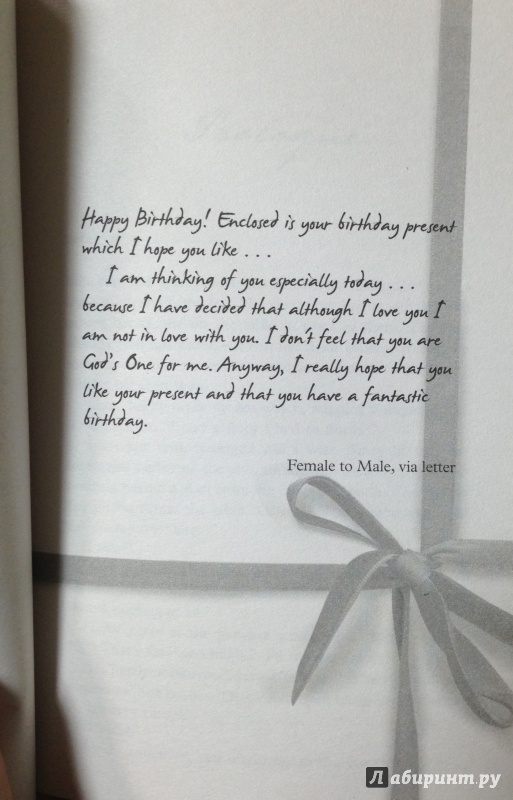 Happy Birthday! Enclosed is your birthday present
which I hope you like . . .
I am thinking of you especially today . . .
because I have decided that although I love you I
am not in love with you. I don't feel that you are
God's One for me. Anyway, I really hope that you
like your present and that you have a fantastic
birthday.
Female to Male, via letter
Лабиринт.ру